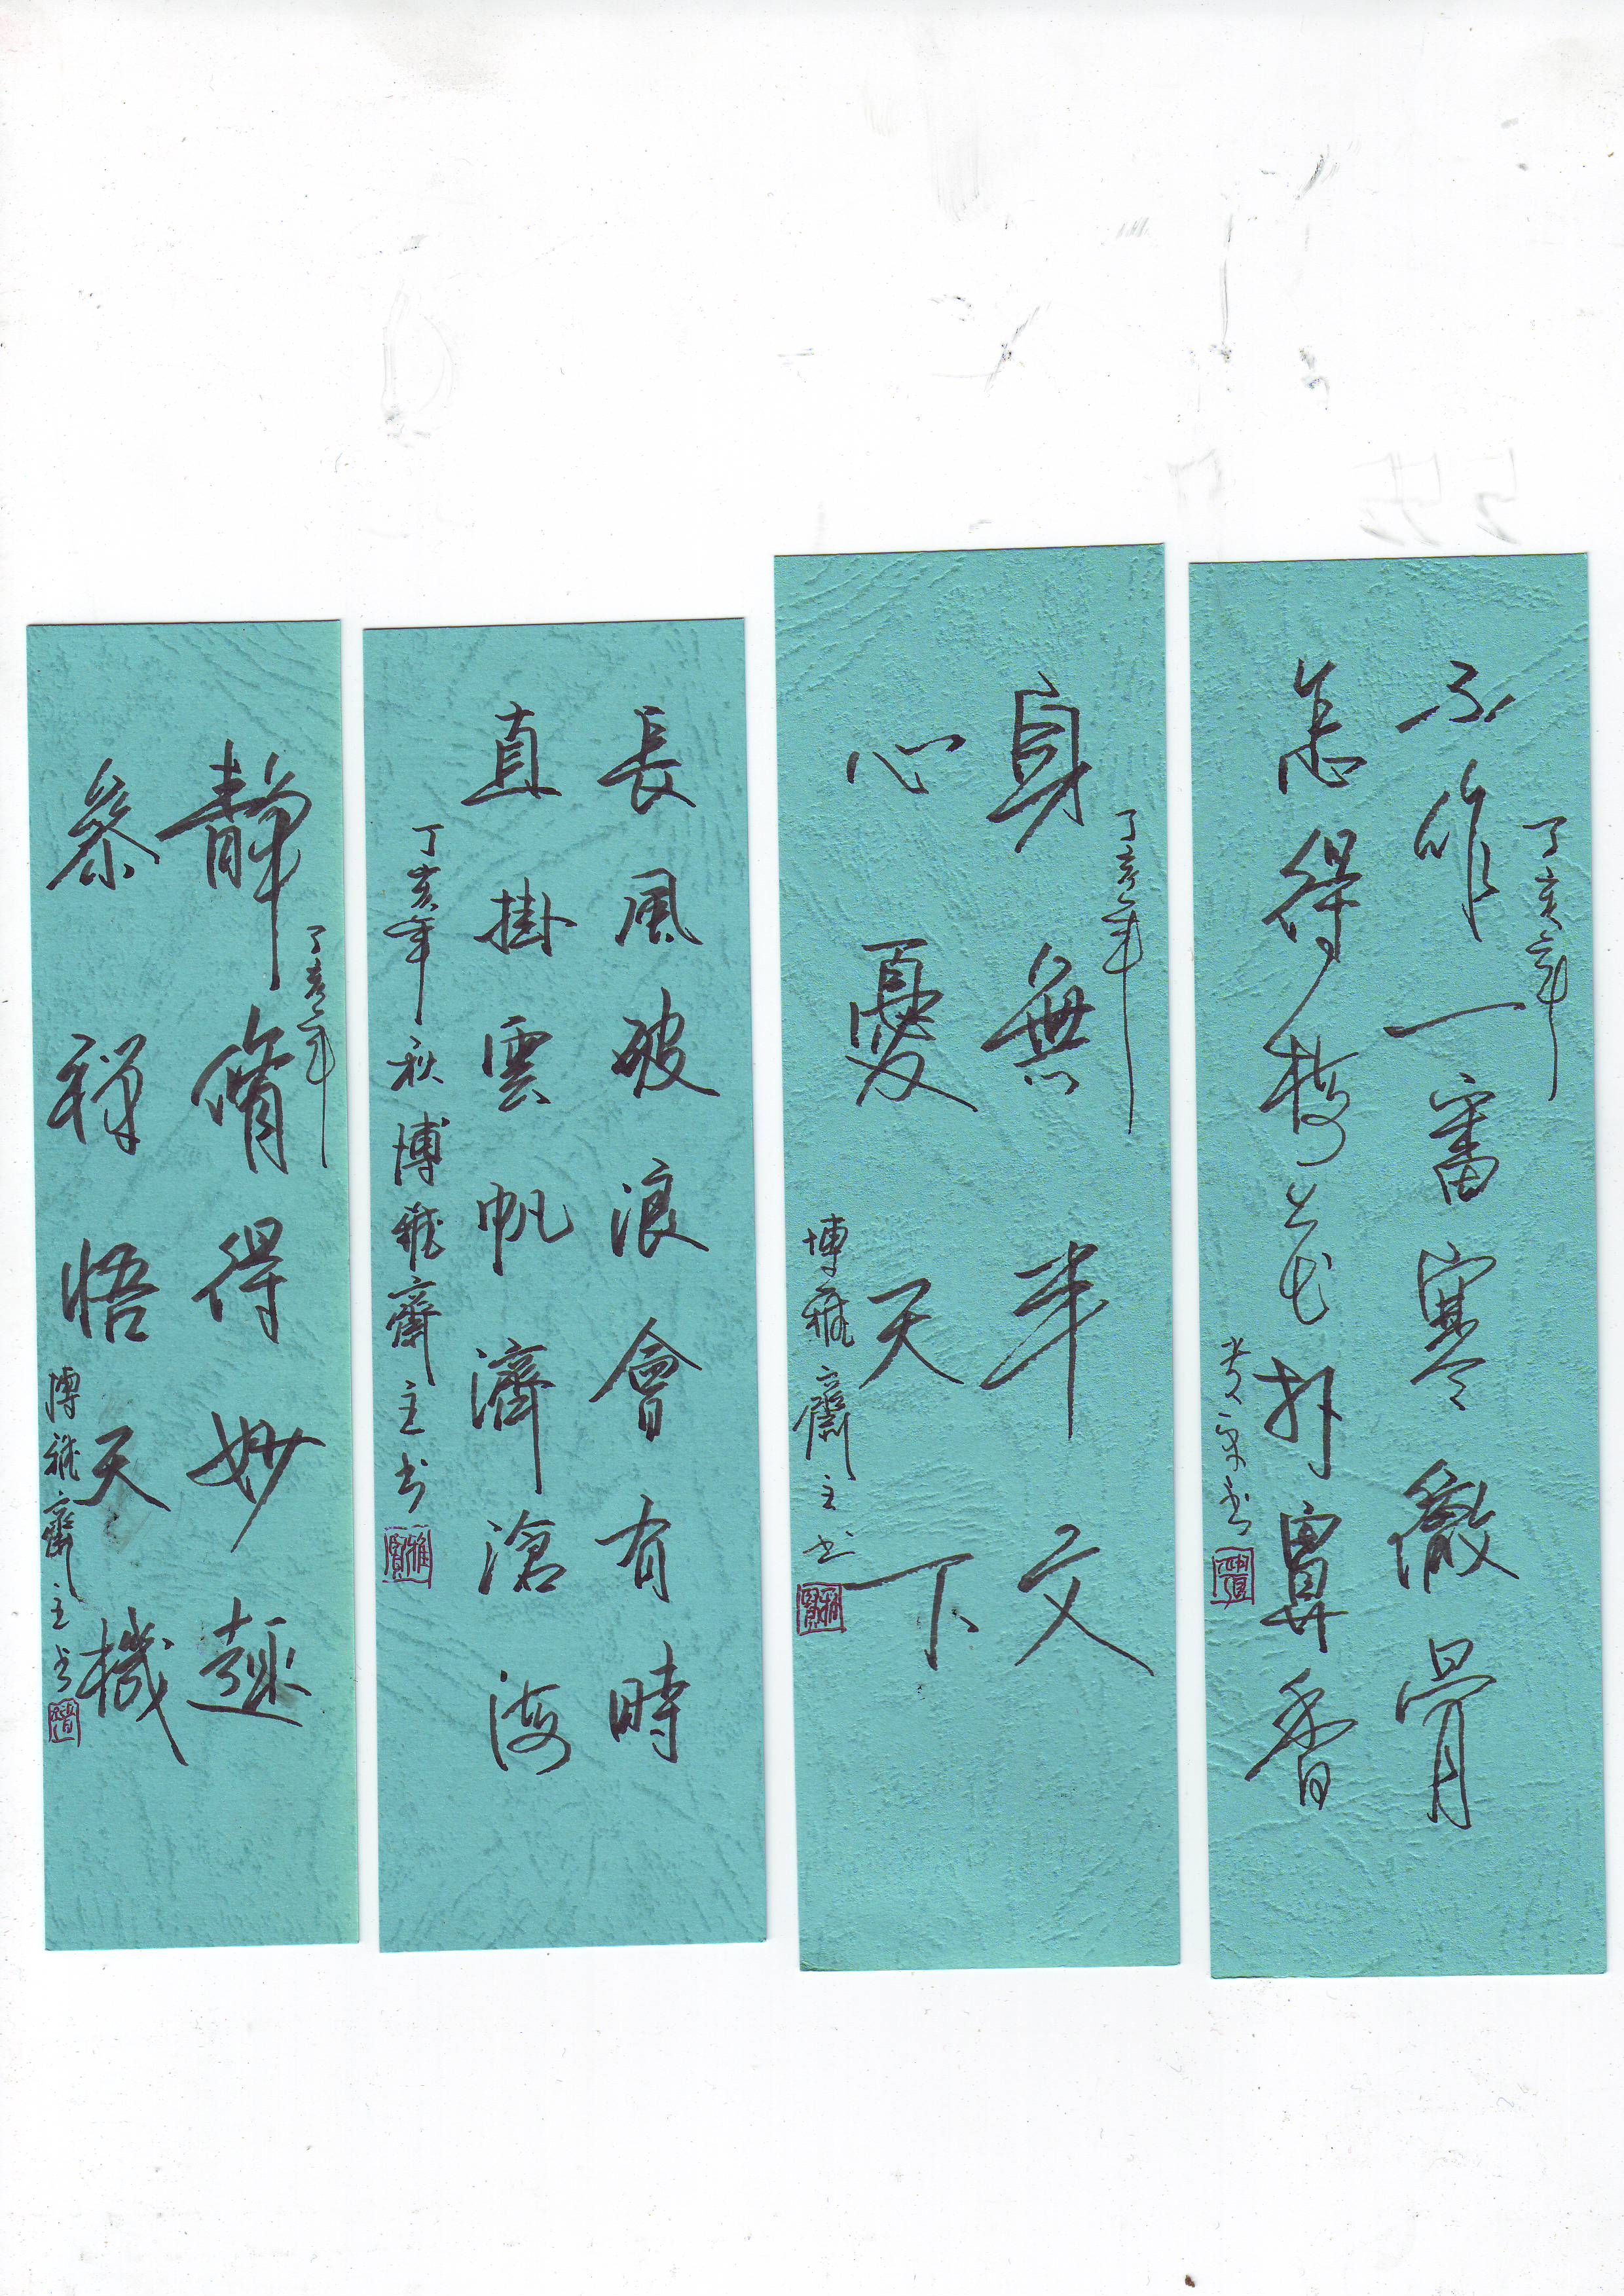 丁亥年
不作一番寒徹骨
怎得梅花扑鼻香
丁亥年
身無半文
心憂天下
博雅齋主书
長風破浪會有時
直掛雲帆濟滄海
丁亥年秋博雅齋主书
雅賢
丁亥年
靜脩得妙趣
參禪悟天機
博雅齋主书